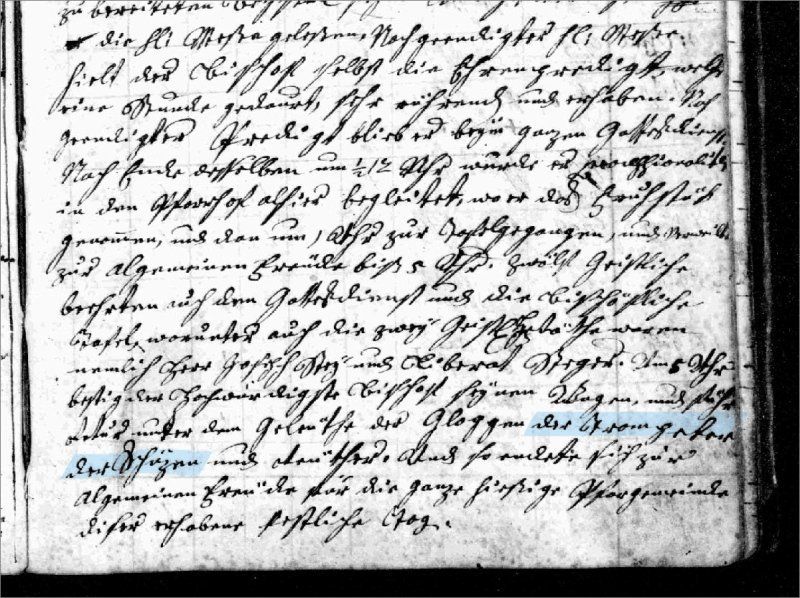 zu bereiteten
die hl: Messe gelesen, Nach geendigter hl: Messe
hielt der Bischof selbst die Ehrenpredigt, welche
eine Stunde gedaurt, sehr rührend und erhaben. Nach
geendigter Predigt blieb er beym ganzen Gottesdienst
Nach Ende desselben um ½ 12 Uhr wurde er
in den Pfarrhof alhier begleitet, wo er das Fruhstük
genommen, und dan um 1 Uhr zur Tafel gegangen, und verweilte
zur algemeinen Freüde bis 5 Uhr. Zwölf Geistliche
beehrten auch den Gottesdienst und die Bischöfliche
Tafel, worunter auch die zwey Geistl: Räthe waren
nemlich Herr Joseph und Liberat Steger. Um 5 Uhr
bestig der Hochwürdigste Bischof seynen Wagen, und fuhr
unter dem Geleüthe der Gloggen der Trompeter
der Schüzen und Reüther. Und so endete sich zur
algemeinen Freüde für die ganze hiesige Pfargemeinde
diser erhabene festliche Tag.